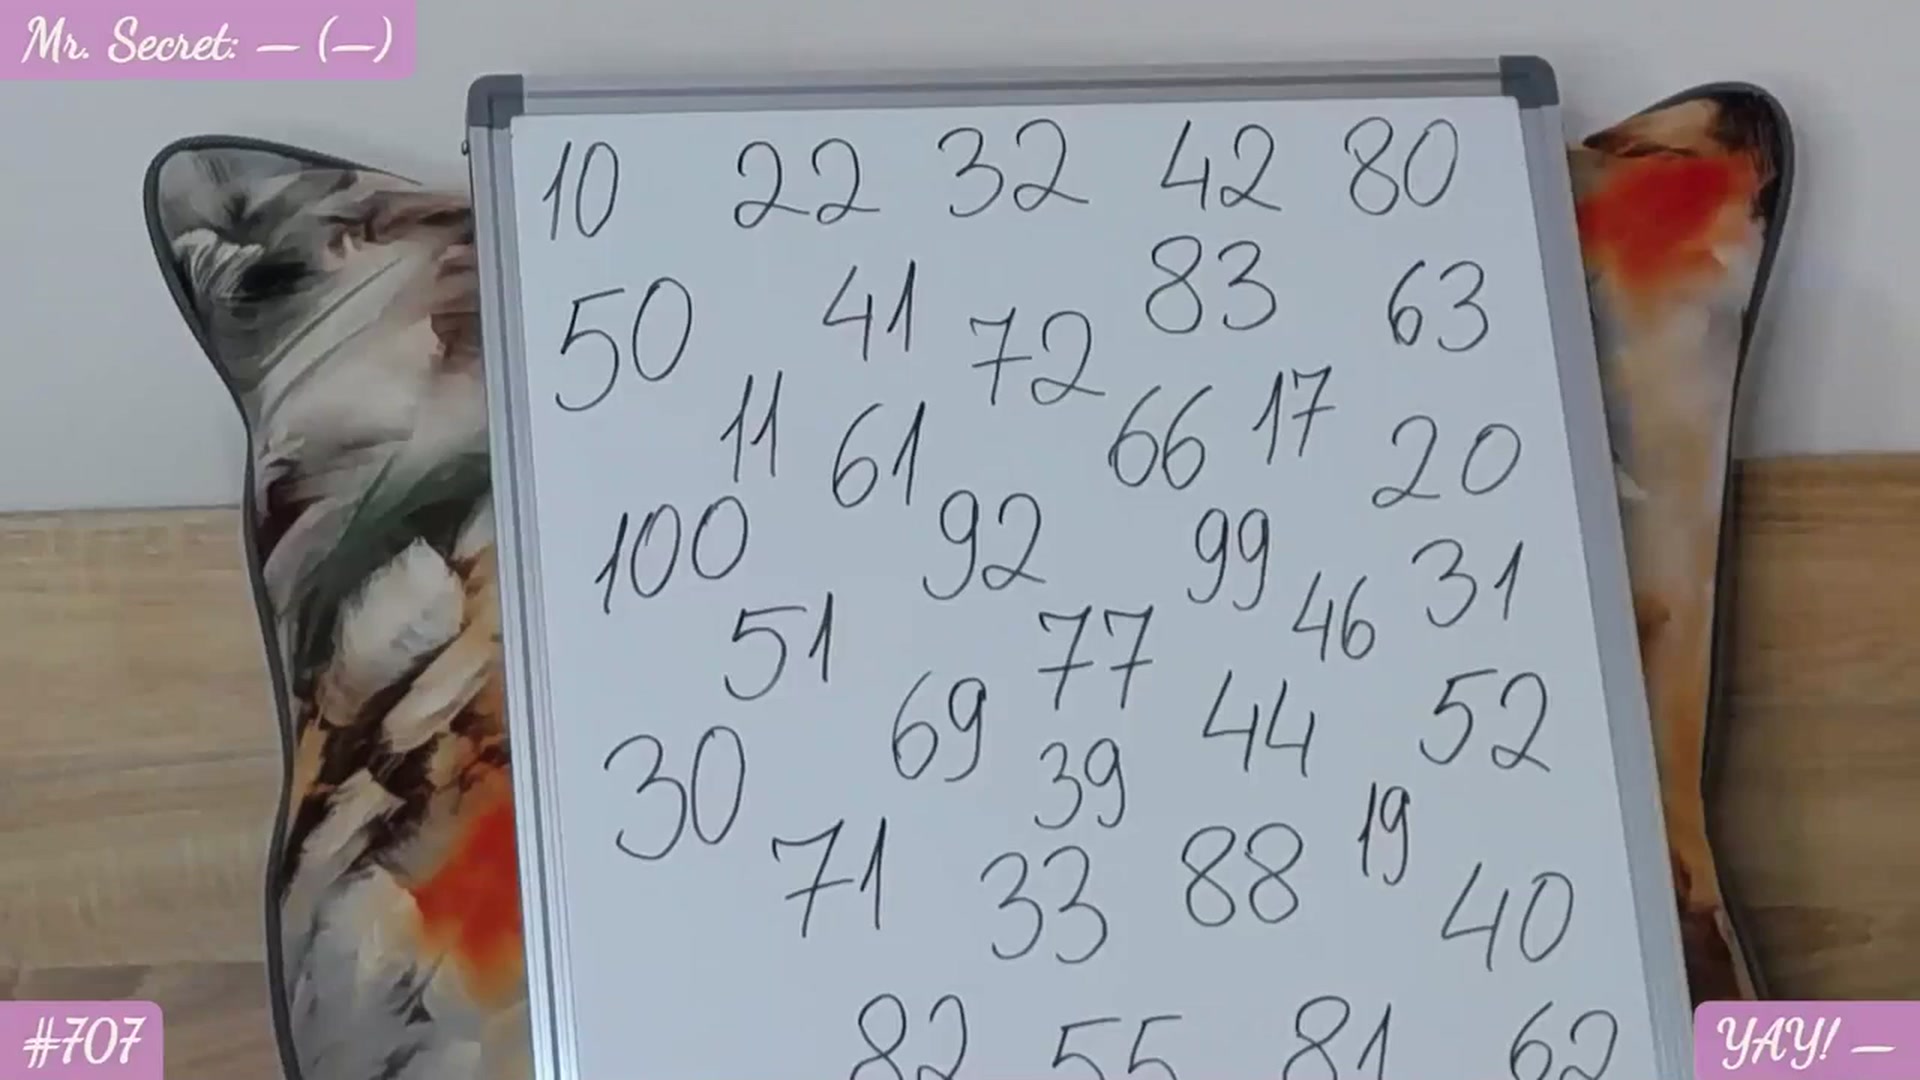 Mr. Secret: — (—)
10 22 32 42 80
50 41 72 83 63
11 61 66 17 20
100 92 99 46 31
51 77 44 52
30 69 39 19
71 33 88 40
82 55 81 62
#707
YAY! —